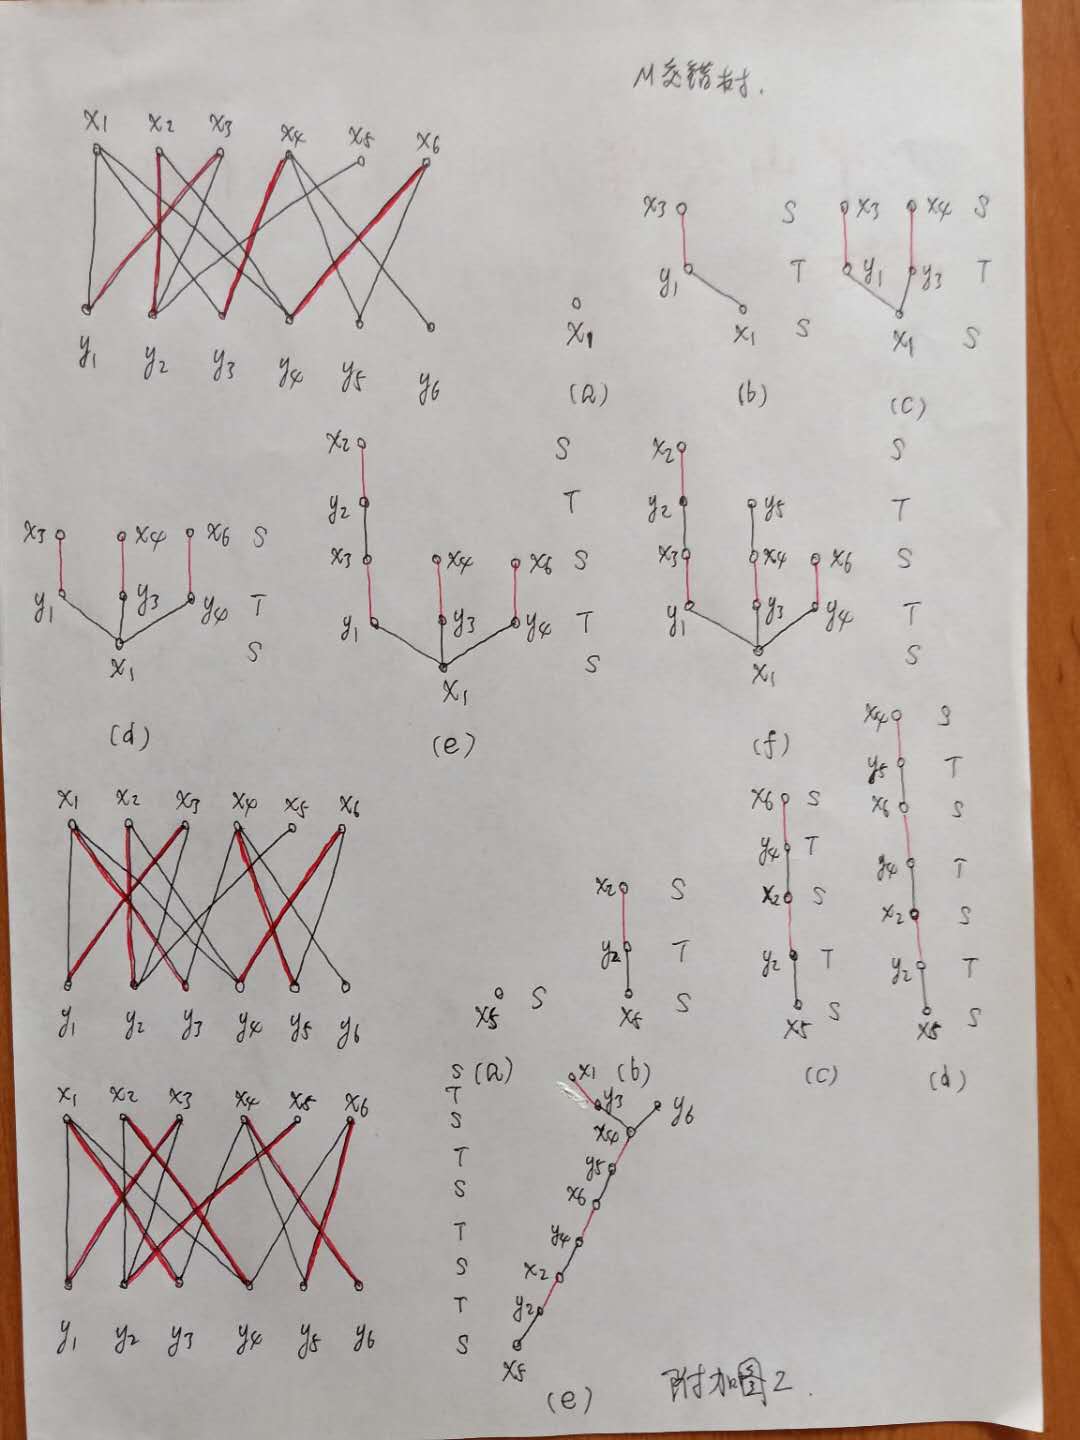 M交错树.
x1 x2 x3 x4 x5 x6
y1 y2 y3 y4 y5 y6
x1
(a)
x3 S
y1 T
x1 S
(b)
x3 x4 S
y1 y3 T
x1 S
(c)
x3 x4 x6 S
y1 y3 y4 T
x1 S
(d)
x2 S
y2 T
x3 x4 x6 S
y1 y3 y4 T
x1 S
(e)
x2 S
y2 y5 T
x3 x4 x6 S
y1 y3 y4 T
x1 S
(f)
x1 x2 x3 x4 x5 x6
y1 y2 y3 y4 y5 y6
x5 S
(a)
x2 S
y2 T
x5 S
(b)
x6 S
y4 T
x2 S
y2 T
x5 S
(c)
x4 S
y5 T
x6 S
y4 T
x2 S
y2 T
x5 S
(d)
x1 x2 x3 x4 x5 x6
y1 y2 y3 y4 y5 y6
S x1
T y3 y6
S x4
T y5
S x6
T y4
S x2
T y2
S x5
(e)
附加图2.